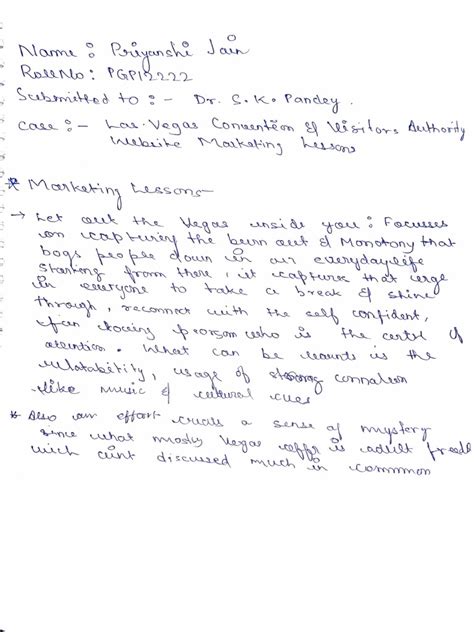 Name : Priyanshi Jain
Roll No : PGP12222
Submitted to : - Dr. S. K. Pandey.
Case : - Las Vegas Convention & Visitors Authority
Website Marketing Lessons
* Marketing Lessons -
→ Let out the Vegas inside you : Focusses
on capturing the burn out & Monotony that
bogs people down in our everyday life
starting from there, it captures that urge
in everyone to take a break & shine
through, reconnect with the self confident,
fun loving person who is the centre of
attention. What can be learnts is the
relatability, usage of strong connation
like music & cultural cues
* Also an effort creats a sense of mystery
since what mostly Vegas offer is adult
wich discussed much in common